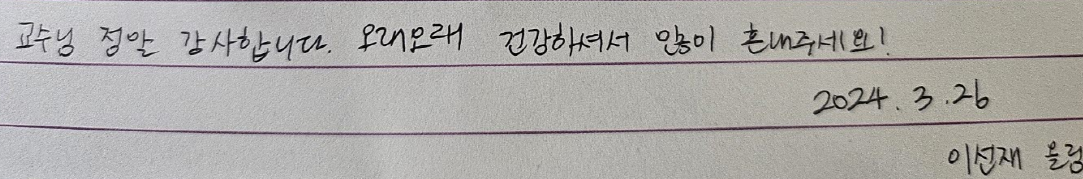 교수님 정말 감사합니다. 오래오래 건강하셔서 많이 혼내주세요!
2024. 3. 26
이선재 올림